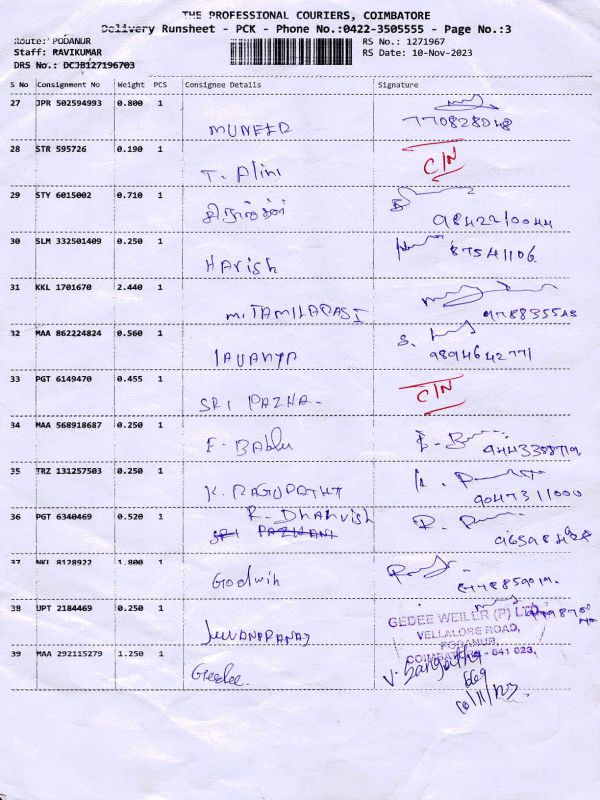 THE PROFESSIONAL COURIERS, COIMBATORE
Delivery Runsheet - PCK - Phone No.:0422-3505555 - Page No.:3
Route: PODANUR
Staff: RAVIKUMAR
DRS No.: DCJB127196703
RS No.: 1271967
RS Date: 10-Nov-2023
S No Consignment No Weight PCS Consignee Details Signature
27 JPR 502594993 0.800 1 MUNEER
770828048
28 STR 595726 0.190 1 T. Alini C/N
29 STY 6015002 0.710 1
9842210044
30 SLM 332501409 0.250 1 Harish 87541106
31 KKL 1701670 2.440 1 M. TAMILARASI
32 MAA 862224824 0.560 1 LAVANYA S.
9894642771
33 PGT 6149470 0.455 1 SRI PAZHA. C/N
34 MAA 568918687 0.250 1 E. Bablu
35 TRZ 131257503 0.250 1 K. RAGUPATHY
9047311000
36 PGT 6340469 0.520 1 R. Dhanvish
SRI PAZHANI
37 NKL 8128922 1.800 1 Godwin
38 UPT 2184469 0.250 1
GEDEE WEILER (P) LTD.
VELLALORE ROAD,
PODANUR,
COIMBATORE - 641 023.
39 MAA 292115279 1.250 1 Geedee.
V. Sangeetha
10/11/23